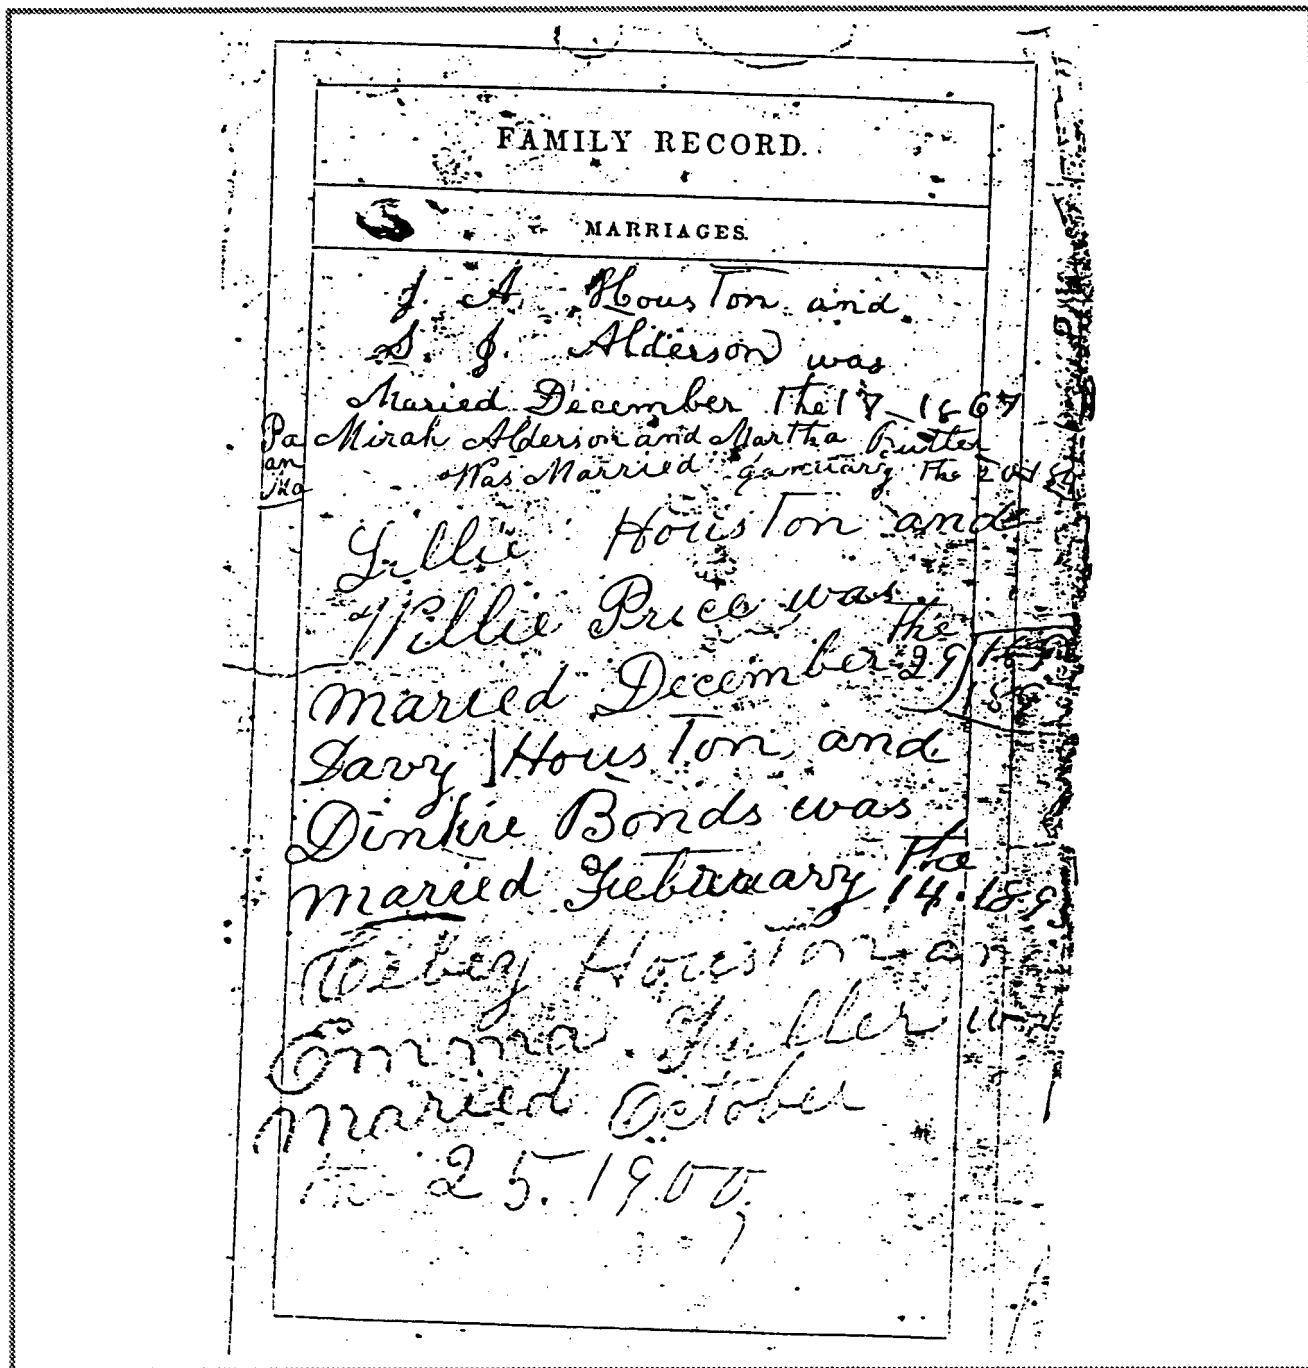 FAMILY RECORD.
MARRIAGES.
J. A. Houston and
S. J. Alderson was
Maried December the 17 1867
Pa Mirah Alderson and Martha
an Was Married January the
Ma
Lillie Houston and
Willie Price was
maried December the 29
Davy Houston and
Dinkie Bonds was
maried Februuary the 14. 189
Houston an
Emma Fuller
maried October
the 25. 1900